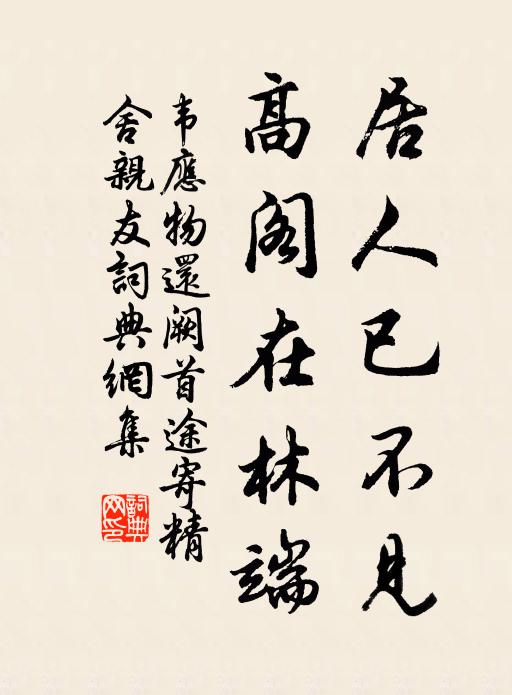 居人已不見
高阁在林端
韦應物還阙首途寄精
舍親友詞典網集
詞典
网印